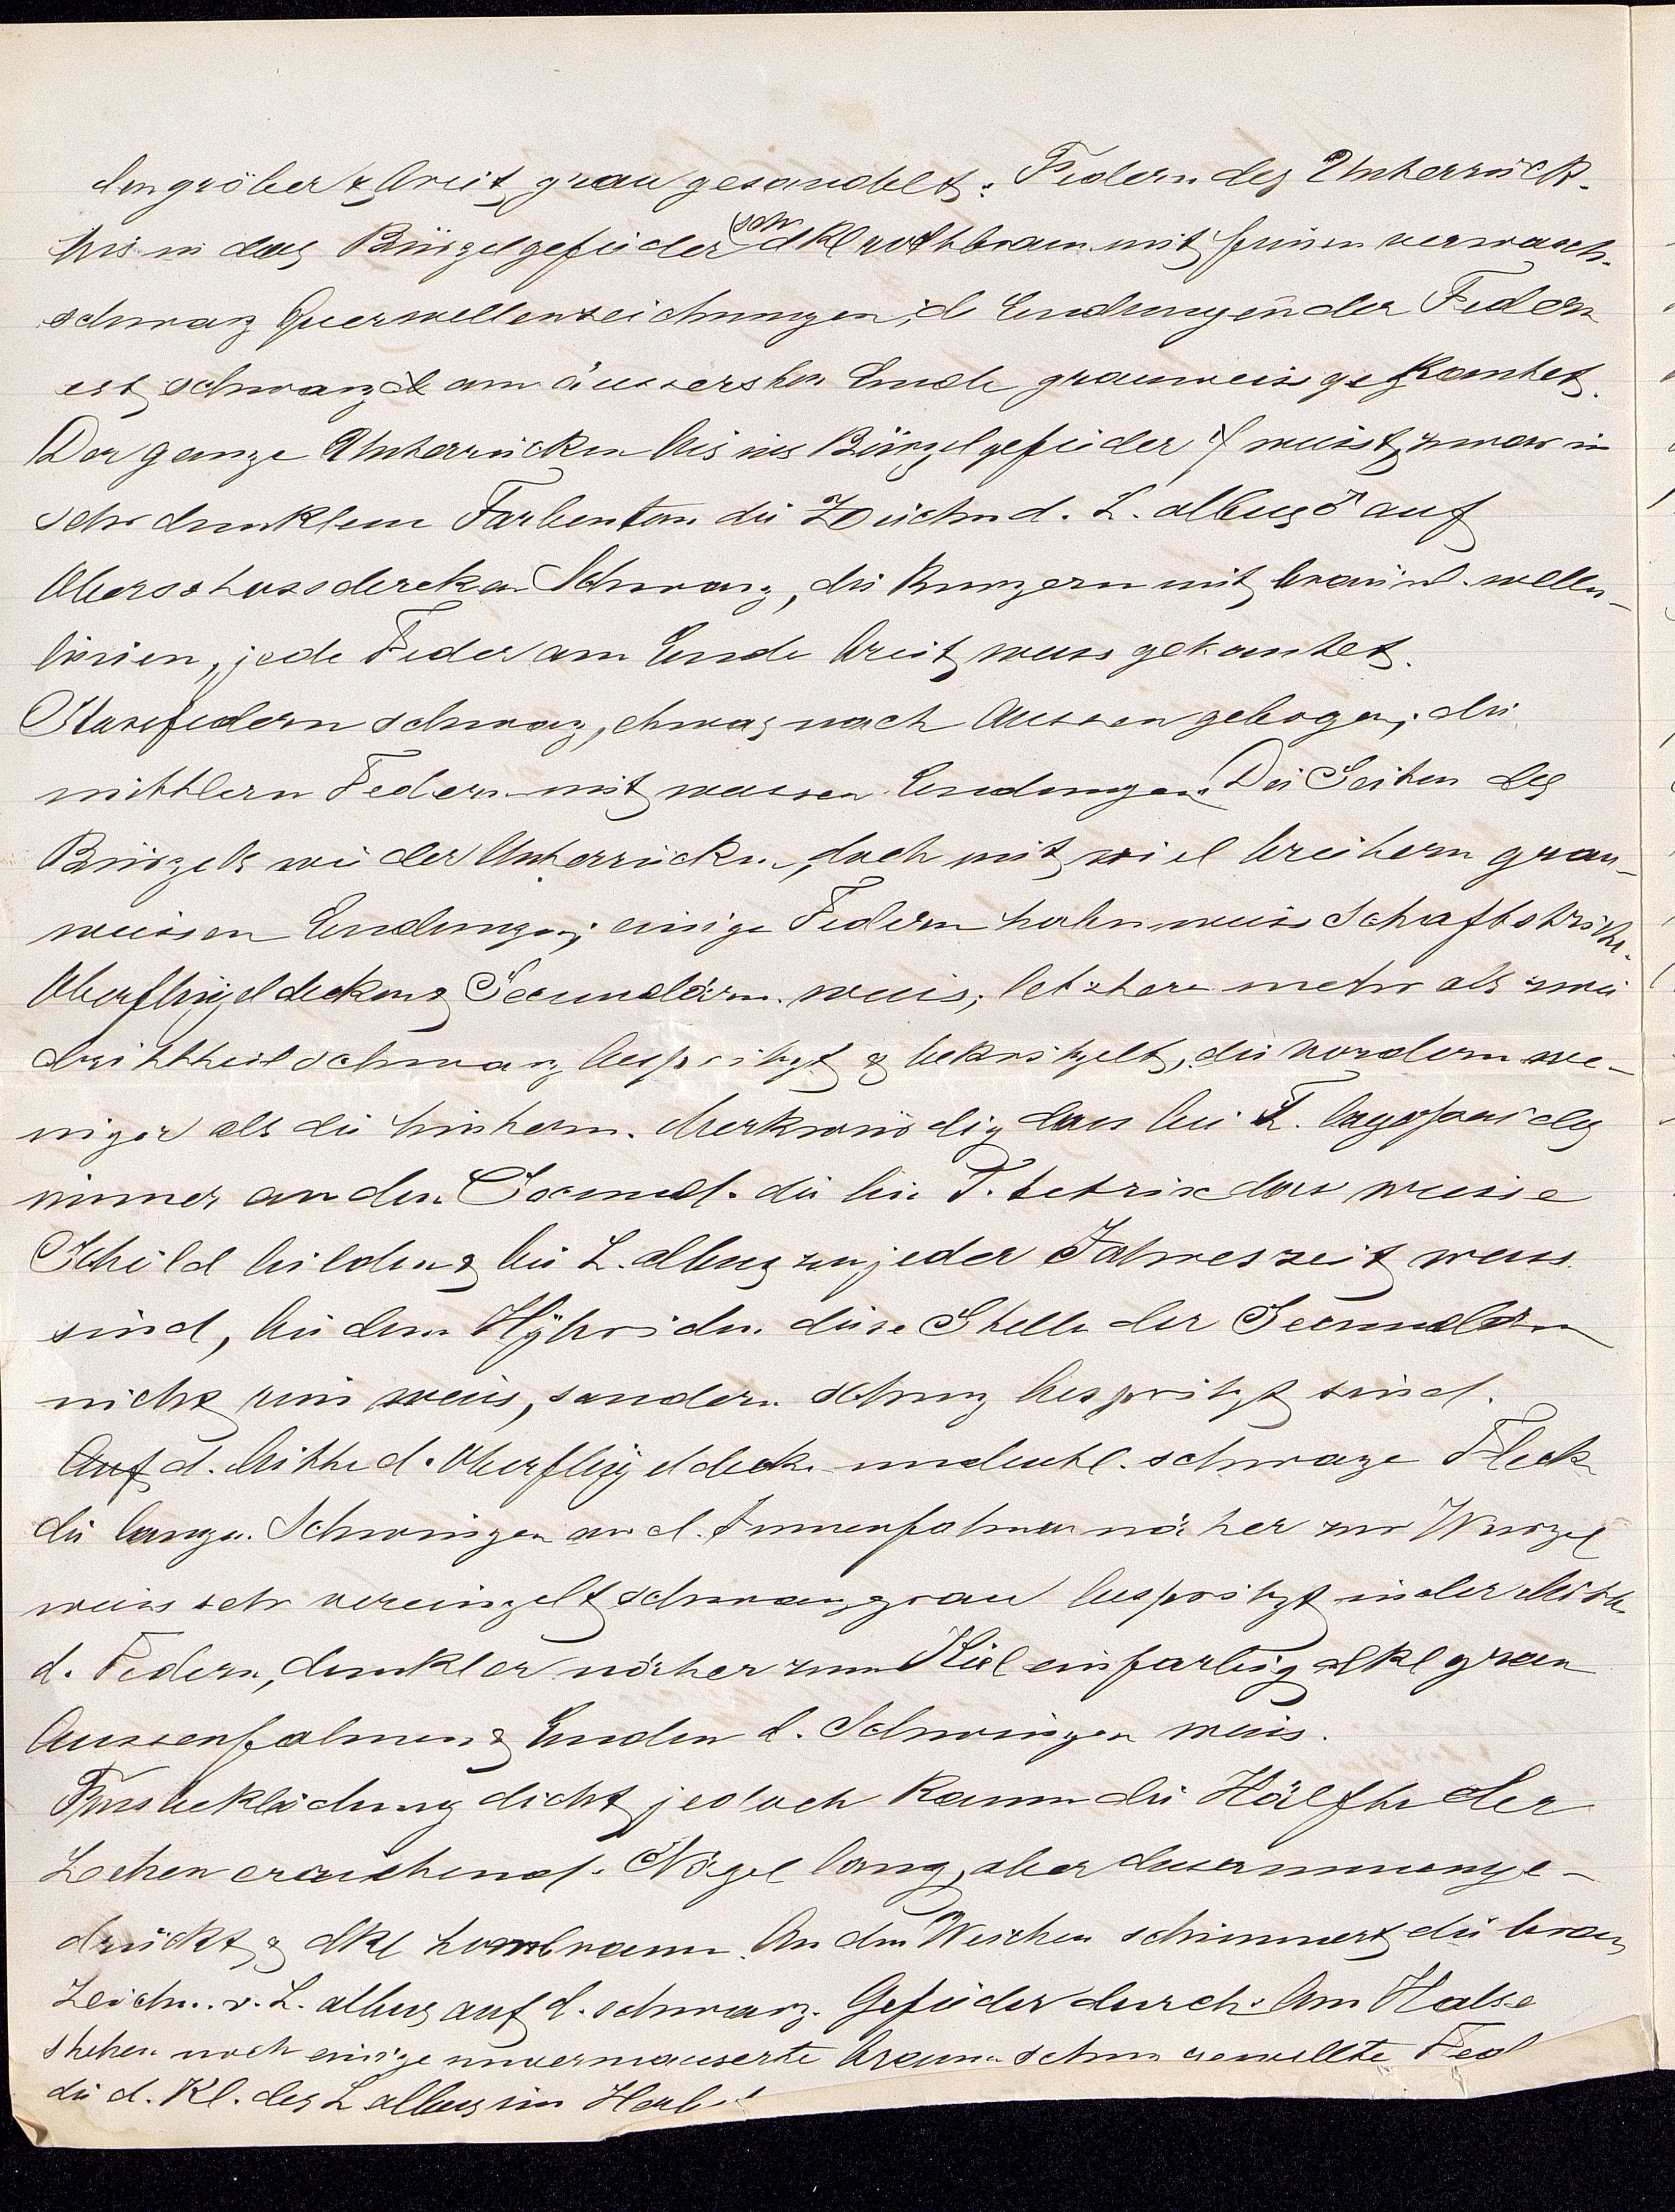 den gröber & breit grau gesandelt. Federn des Unterrück.
bis in das Bürzelgefieder sehr dkl rothbraun mit feinen verwasch.
schwarz Querwellenzeichnungen, d Endungen der Federn
ist schwarz & am äussersten Ende grauweis gekantet.
Der ganze Unterrücken bis ins Bürzelgefieder weist zwar in
sehr dunklem Farbenton die Zeichn d. L. albus ♂ auf
Oberstossdecken Schwarz, die kürzern mit bräunl. wellen-
linien, jede Feder am Ende breit weis gekantet.
Stossfedern schwarz, etwas nach Aussen gebogen; die
mittlern Federn mit weissen Endungen. Die Seiten des
Bürzels wie der Unterrücken, doch mit viel breitern grau-
weissen Endungen; einige Federn haben weis Schaftstriche.
Oberflügeldecken & Secundärn. weis, letztere mehr als zwei
dritttheil schwarz bespritzt & bekritzelt, die vordern we-
niger als die hintern. Merkwürdig dass bei T. lagopoides
immer an den Secund. die bei T. tetrix das weise
Schild bilden & bei L. albus zu jeder Jahreszeit weis
sind, bei dem Hÿbriden diese Stelle der Secundärn
nicht rein weis, sondern schwz bespritzt sind.
Auf d. Mitte d. Oberflügeldeck. undeutl. schwarze Fleck
die langen Schwingen an d. Innenfahnen näher zur Wurzel
weis sehr vereinzelt schwarzgrau bespritzt in der Mitte
d. Federn, dunkler näher zum Kiel einfarbig dkl grau
Aussenfahnen & Enden d. Schwingen weis.
Fussbekleidung dicht jedoch kaum die Hälfte der
Zehen erreichend. Nägel lang, aber dusammenge-
drückt & dkl hornbraun. An den Weichen schimmert die braun
Zeichn. v. L. albus auf d. schwarz. Gefieder durch. Am Halse
stehen noch einige unvermauserte braun schw gewellte Fed
die d. Kl. des L albus im Herbst